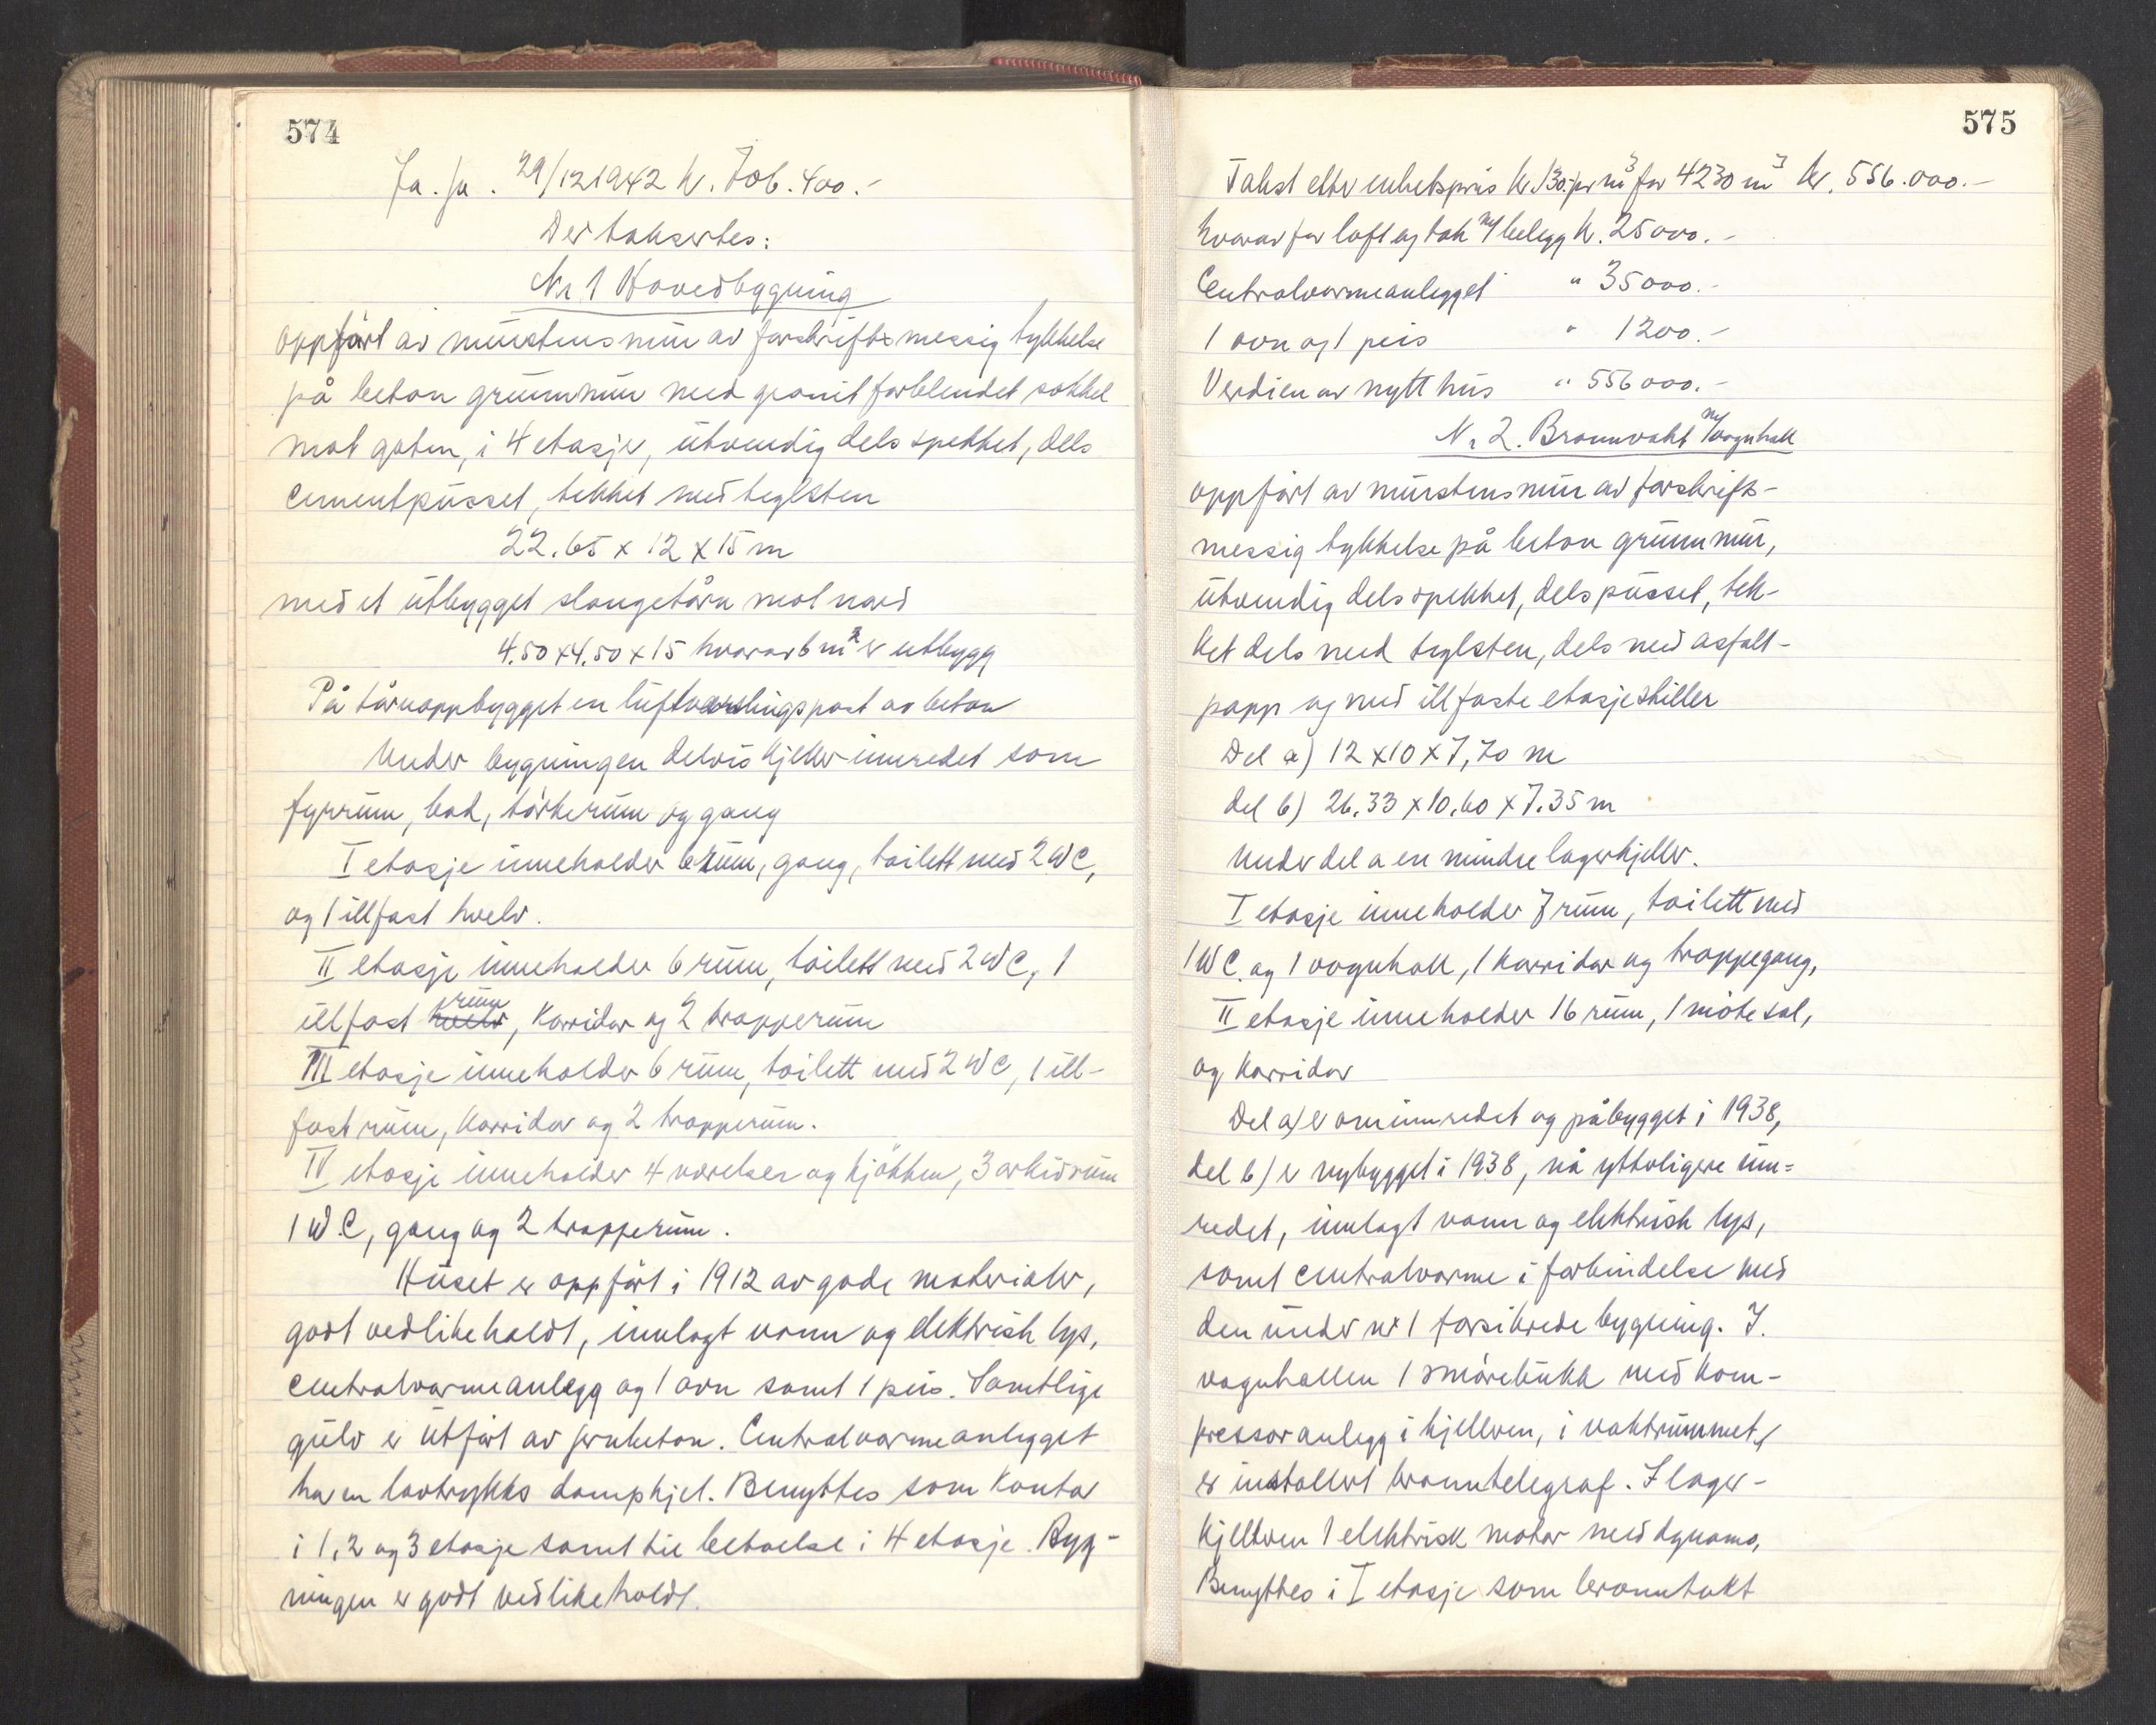 574
Fa. fu. 29/12 1942 kr. 706.400.-
Der takseres:
Nr 1 Hovedbygning
oppført av murstens mur av forskriftsmessig tykkelse
på beton grunnmur med granit forblendet sokkel
mot gaten, i 4 etasjer, utvendig dels spekket, dels
cementpusset, tekket med teglsten
22.65 x 12 x 15 m
med et utbygget slangetårn mot nord
4.50 x 4.50 x 15 hvorav 6 m² er utbygg
På tårnoppbygget en luftvarslingspost av beton
Under bygningen delvis kjeller innredet som
fyrrum, bad, tørkerum og gang
I etasje inneholder 6 rum, gang, toilett med 2 WC,
og 1 illfast hvelv.
II etasje inneholder 6 rum, toilett med 2 WC, 1
illfast hvelv rum, korridor og 2 trapperum
III etasje inneholder 6 rum, toilett med 2 WC, 1 ill-
fast rum, korridor og 2 trapperum.
IV etasje inneholder 4 værelser og kjøkken, 3 arkivrum
1 W.C, gang og 2 trapperum.
Huset er oppført i 1912 av gode materialer,
godt vedlikeholdt, innlagt vann og elektrisk lys,
centralvarmeanlegg og 1 ovn samt 1 peis. Samtlige
gulv er utført av jernbeton. Centralvarmeanlegget
har en lavtrykks dampkjel. Benyttes som kontor
i 1, 2 og 3 etasje samt til beboelse i 4 etasje. Byg-
ningen er godt vedlikeholdt.
575
Takst etter enhetspris kr. 130.- pr m³ for 4230 m³ kr. 556.000.-
hvorav for loft og tak m/ belegg kr. 25000.-
Centralvarmeanlegget " 35000.-
1 ovn og 1 peis " 1200.-
Verdien av nytt hus " 556000.-
Nr 2. Brannvakt m/ vognhall
oppført av murstens mur av forskrifts-
messig tykkelse på beton grunnmur,
utvendig dels spekket, dels pusset, tek-
ket dels med teglsten, dels med asfalt-
papp og med illfaste etasjeskiller
Del a) 12 x 10 x 7,70 m
del b) 26.33 x 10.60 x 7.35 m
Under del a en mindre lagerkjeller.
I etasje inneholder 7 rum, toilett med
1 WC. og 1 vognhall, 1 korridor og trappegang,
II etasje inneholder 16 rum, 1 møtesal,
og korridor
Del a) er ominnredet og påbygget i 1938,
del b) er nybygget i 1938, nå ytterligere inn-
redet, innlagt vann og elektrisk lys,
samt centralvarme i forbindelse med
den under nr 1 forsikrede bygning. I.
vognhallen 1 smørebukk med kom-
pressoranlegg i kjelleren, i vaktrummet
er installert branntelegraf. I lager-
kjelleren 1 elektrisk motor med dynamo,
Benyttes i I etasje som brannvakt